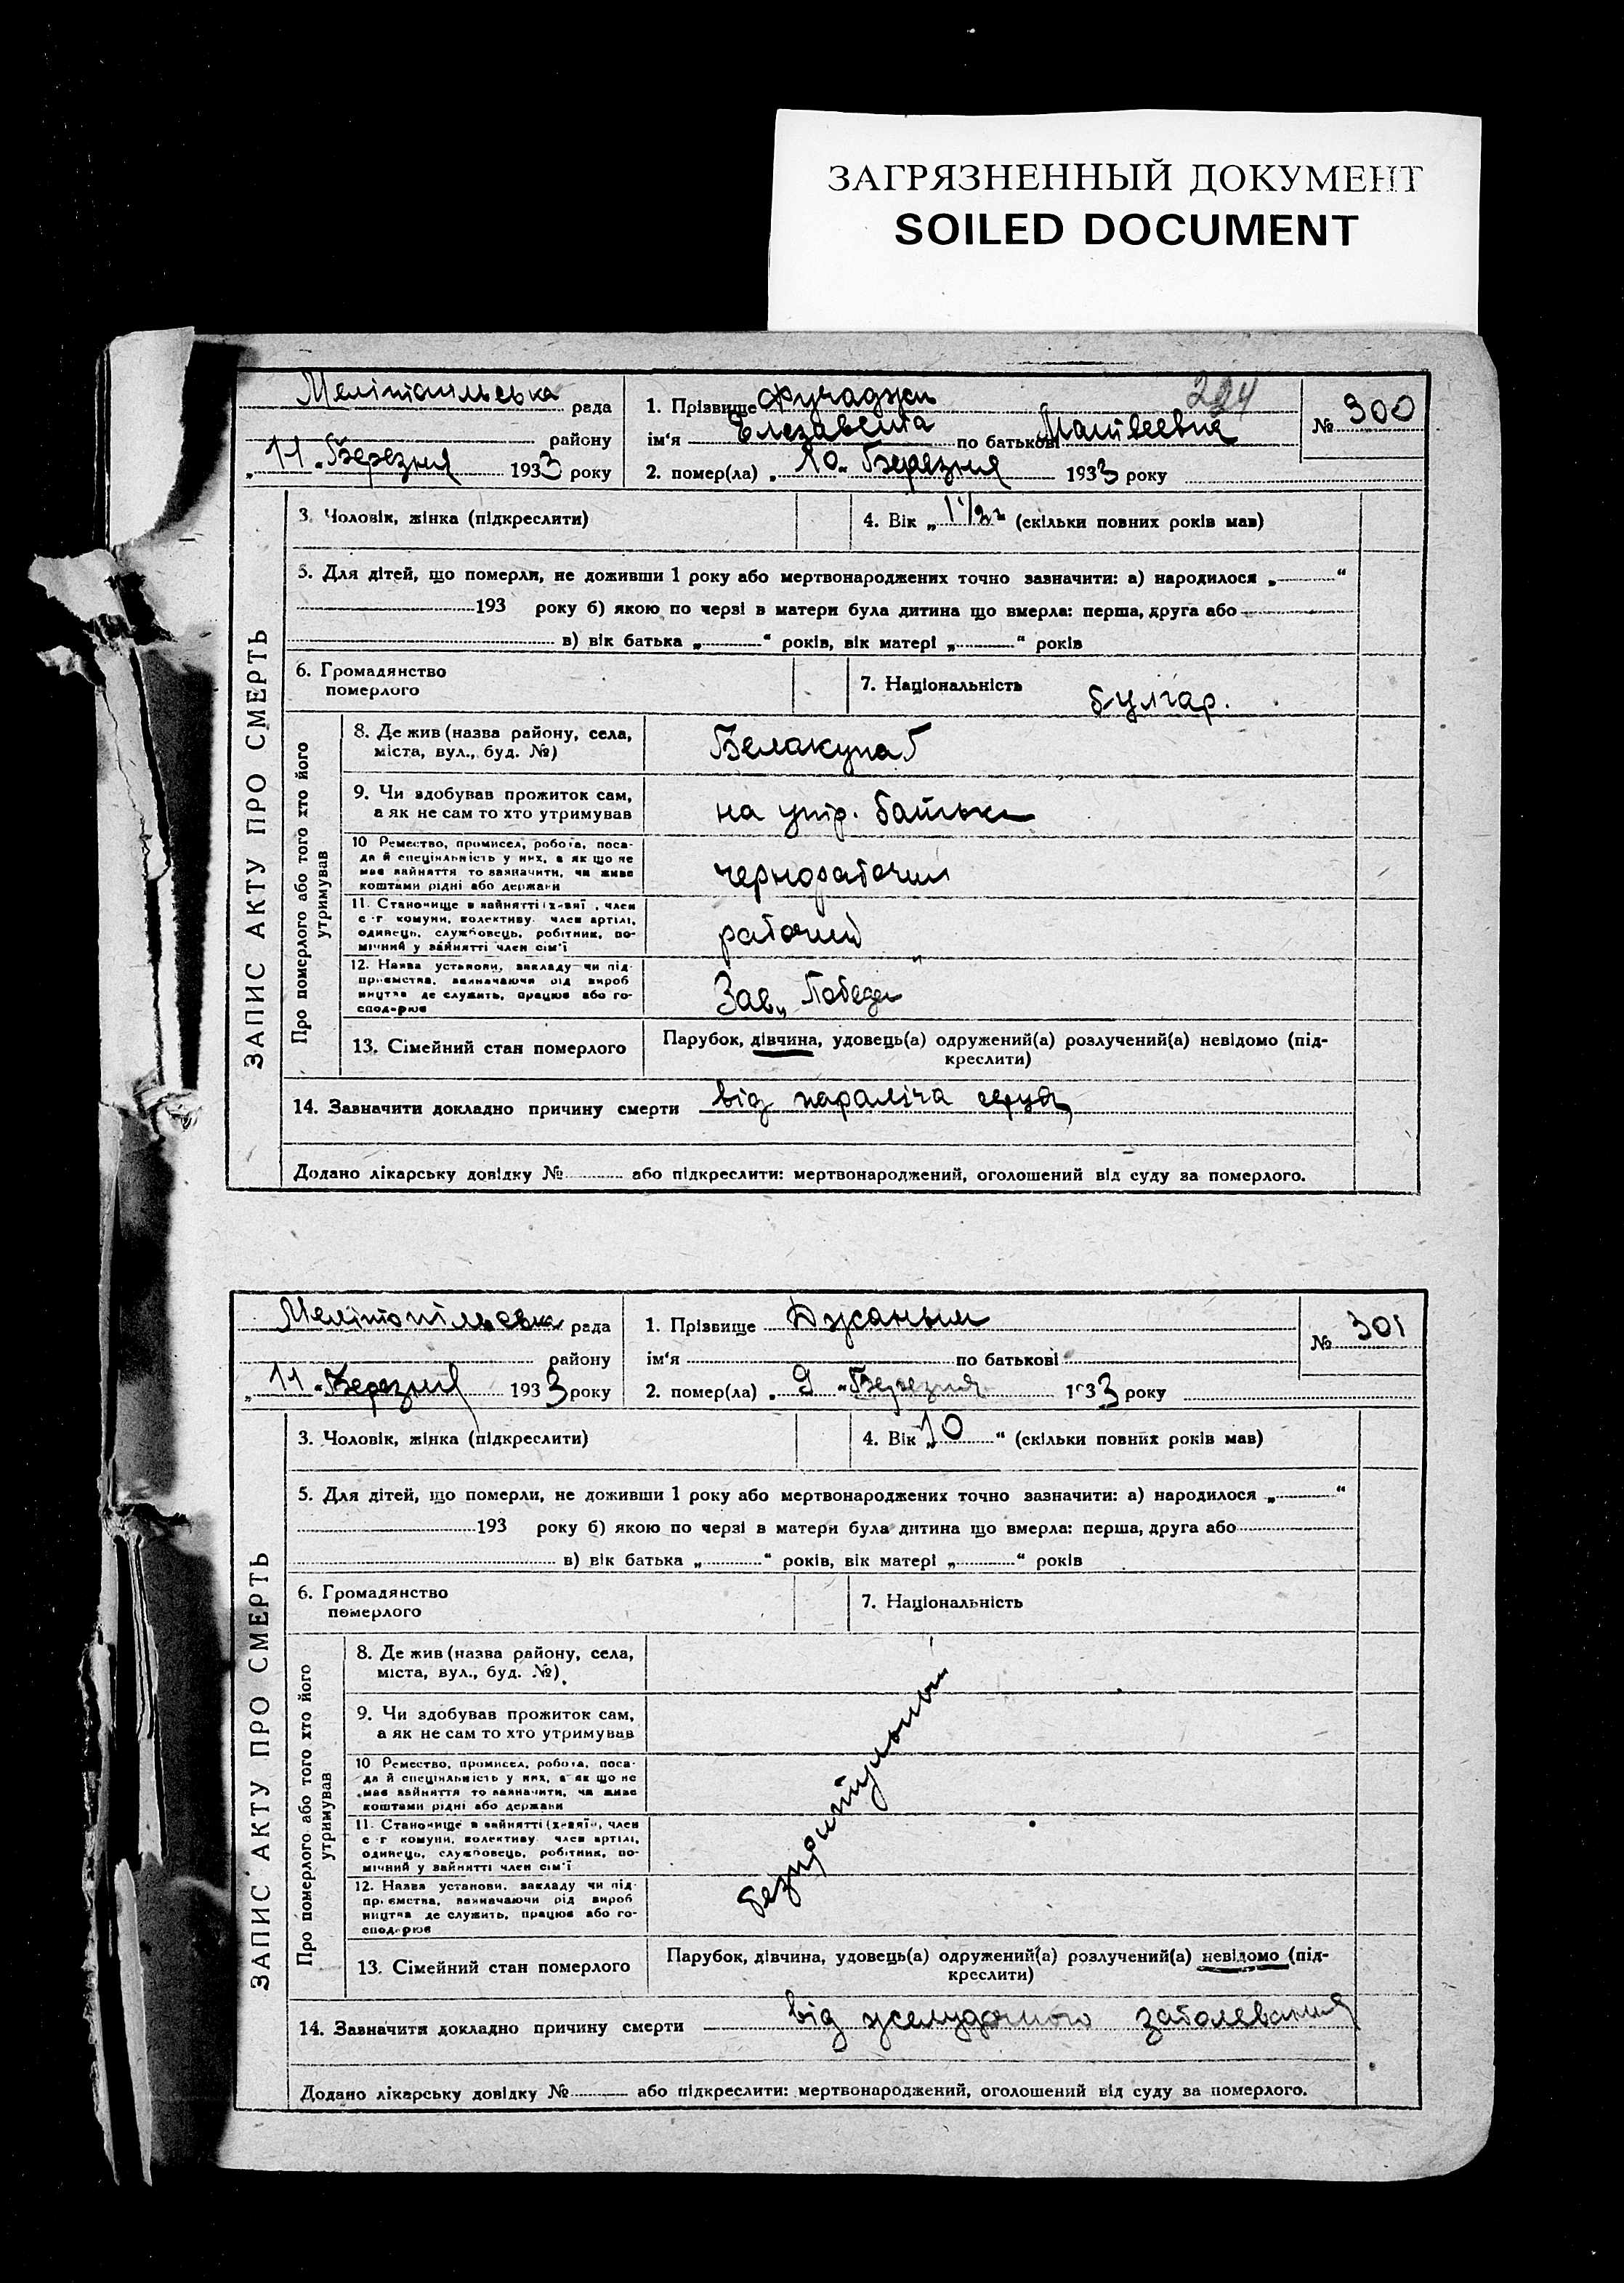 ЗАГРЯЗНЕННЫЙ ДОКУМЕНТ
SOILED DOCUMENT
ЗАПИС АКТУ ПРО СМЕРТЬ
Мелітопільська рада
району
„11„ Березня 1933 року
1. Прізвище Фучаджи
224
ім‘я Елезавета по батькові Матвеевна
2. помер(ла) „10„ Березня 1933 року
№ 300
3. Чоловік, жінка (підкреслити)
4. Вік „1 1/2 (скільки повних років мав)
5. Для дітей, що померли, не доживши 1 року або мертвонароджених точно зазначити: а) народилося „ “
193 року б) якою по черзі в матери була дитина що вмерла: перша, друга або
в) вік батька „ “ років, вік матері „ “ років
6. Громадянство
померлого
7. Національність булгар.
Про померлого або того хто його
утримував
8. Де жив (назва району, села,
міста, вул., буд. №)
Белакуна
9. Чи здобував прожиток сам,
а як не сам то хто утримував
на утр. батька
10 Ремество, промисел, робота, поса-
да й спеціяльність у них, а як що не
має зайняття то зазначити, чи живе
коштами рідні або держави
чернорабочий
11. Становище в зайнятті (хазяї, член
с-г комуни, колективу член артілі,
одинець, службовець, робітник, по-
мічний у зайнятті член сім‘ї
рабочий
12. Назва установи, закладу чи під-
приємства, зазначаючи рід вироб
ництва де служить, працює або го-
сподарює
Зав. „Победа
13. Сімейний стан померлого
Парубок, дівчина, удовець(а) одружений(а) розлучений(а) невідомо (під-
креслити)
14. Зазначити докладно причину смерти від параліча серця
Додано лікарську довідку № або підкреслити: мертвонароджений, оголошений від суду за померлого.
ЗАПИС АКТУ ПРО СМЕРТЬ
Мелітопільська рада
району
„11„ Березня 1933 року
1. Прізвище Джаным
ім‘я по батькові
2. помер(ла) „9 „ Березня 1933 року
№ 301
3. Чоловік, жінка (підкреслити)
4. Вік „10 “ (скільки повних років мав)
5. Для дітей, що померли, не доживши 1 року або мертвонароджених точно зазначити: а) народилося „ “
193 року б) якою по черзі в матери була дитина що вмерла: перша, друга або
в) вік батька „ “ років, вік матері „ “ років
6. Громадянство
померлого
7. Національність
Про померлого або того хто його
утримував
8. Де жив (назва району, села,
міста, вул., буд. №)
9. Чи здобував прожиток сам,
а як не сам то хто утримував
10 Ремество, промисел, робота, поса-
да й спеціяльність у них, а як що не
має зайняття то зазначити, чи живе
коштами рідні або держави
11. Становище в зайнятті (хазяї, член
с-г комуни, колективу член артілі,
одинець, службовець, робітник, по-
мічний у зайнятті член сім‘ї
12. Назва установи, закладу чи під-
приємства, зазначаючи рід вироб
ництва де служить, працює або го-
сподарює
безпритульный
13. Сімейний стан померлого
Парубок, дівчина, удовець(а) одружений(а) розлучений(а) невідомо (під-
креслити)
14. Зазначити докладно причину смерти від желудочного заболевания
Додано лікарську довідку № або підкреслити: мертвонароджений, оголошений від суду за померлого.